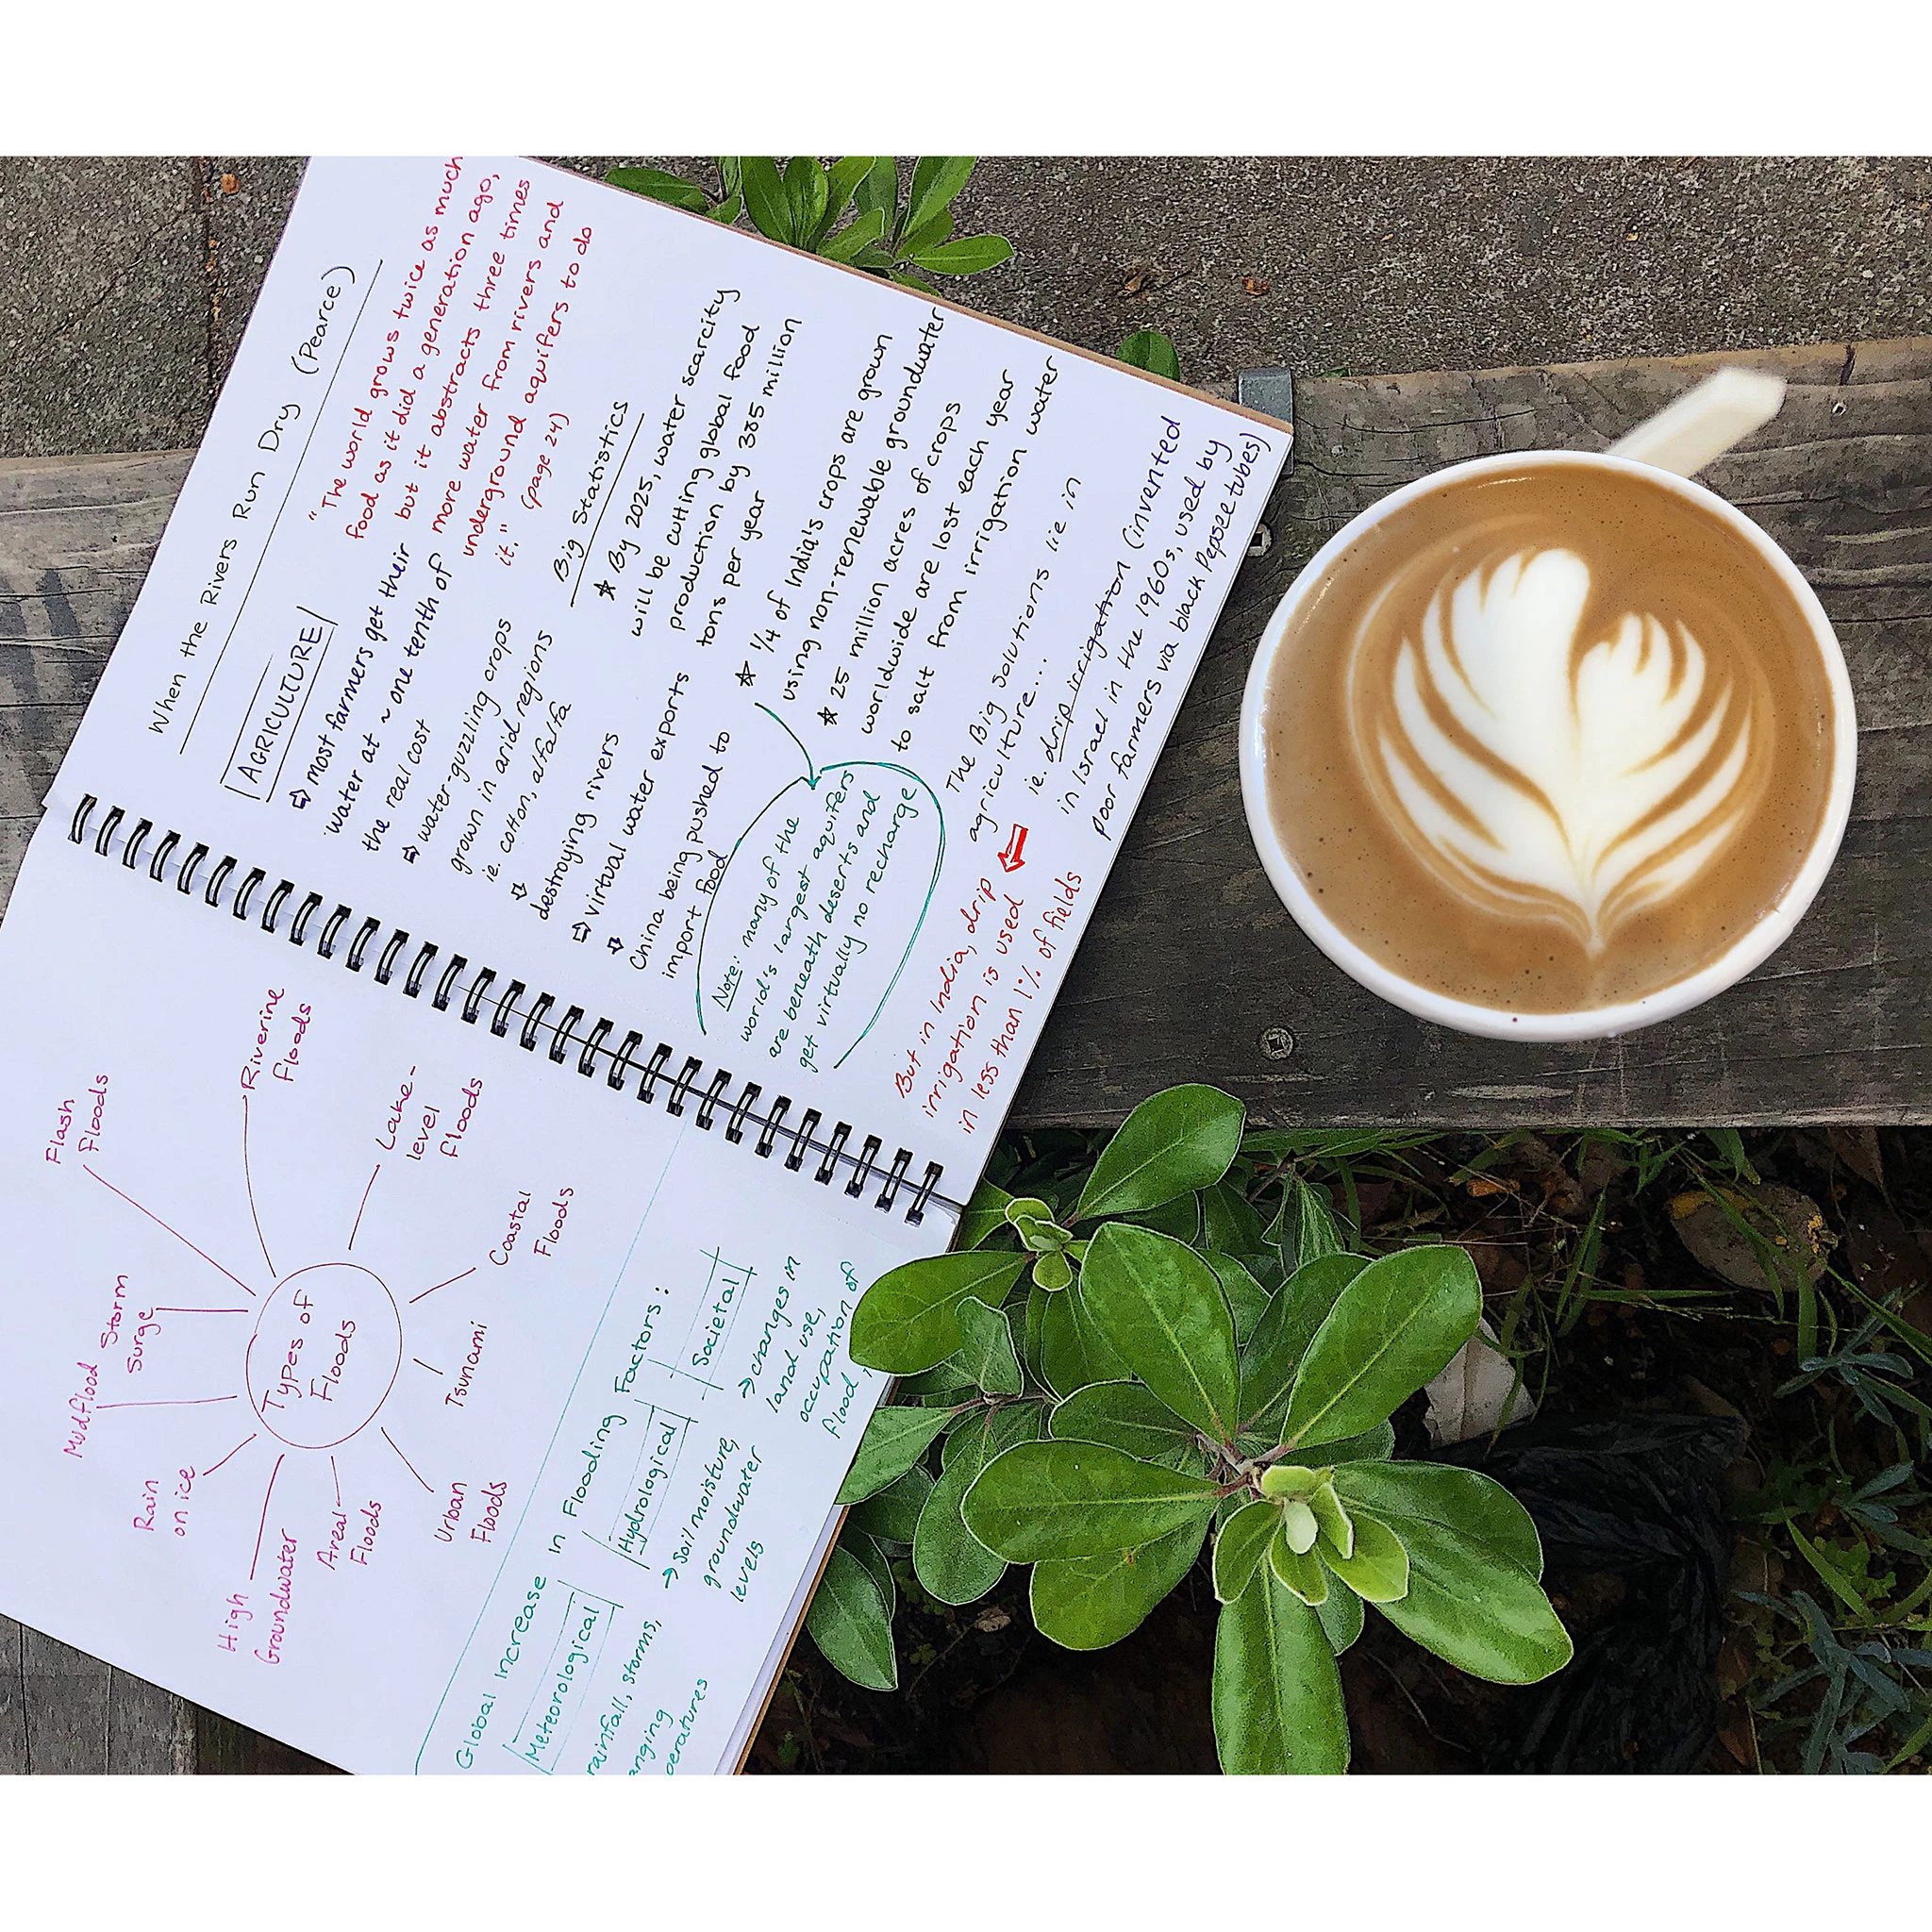 When the Rivers Run Dry (Pearce)
AGRICULTURE
⇨ most farmers get their
water at ~ one tenth of
the real cost
⇨ water-guzzling crops
grown in arid regions
ie. cotton, alfalfa
⇨
destroying rivers
⇨ virtual water exports
⇨
China being pushed to
import food
"The world grows twice as much
food as it did a generation ago,
but it abstracts three times
more water from rivers and
underground aquifers to do
it." (page 24)
Big Statistics
★ By 2025, water scarcity
will be cutting global food
production by 385 million
tons per year
★ 1/4 of India's crops are grown
using non-renewable groundwater
★ 25 million acres of crops
worldwide are lost each year
to salt from irrigation water
Note: many of the
world's largest aquifers
are beneath deserts and
get virtually no recharge
The Big Solutions lie in
agriculture...
ie. drip irrigation (invented
in Israel in the 1960s, used by
poor farmers via black Pepsee tubes)
But in India, drip
irrigation is used
in less than 1% of fields
Types of
Floods
Flash
Floods
Riverine
Floods
Lake-
level
floods
Coastal
Floods
Tsunami
Urban
Floods
Areal
Floods
High
Groundwater
Rain
on ice
Mudflood
Storm
Surge
Global Increase In Flooding Factors:
Meteorological
rainfall, storms,
Hydrological
→ Soil moisture,
groundwater
levels
Societal
→ changes in
land use,
occupation of
flood